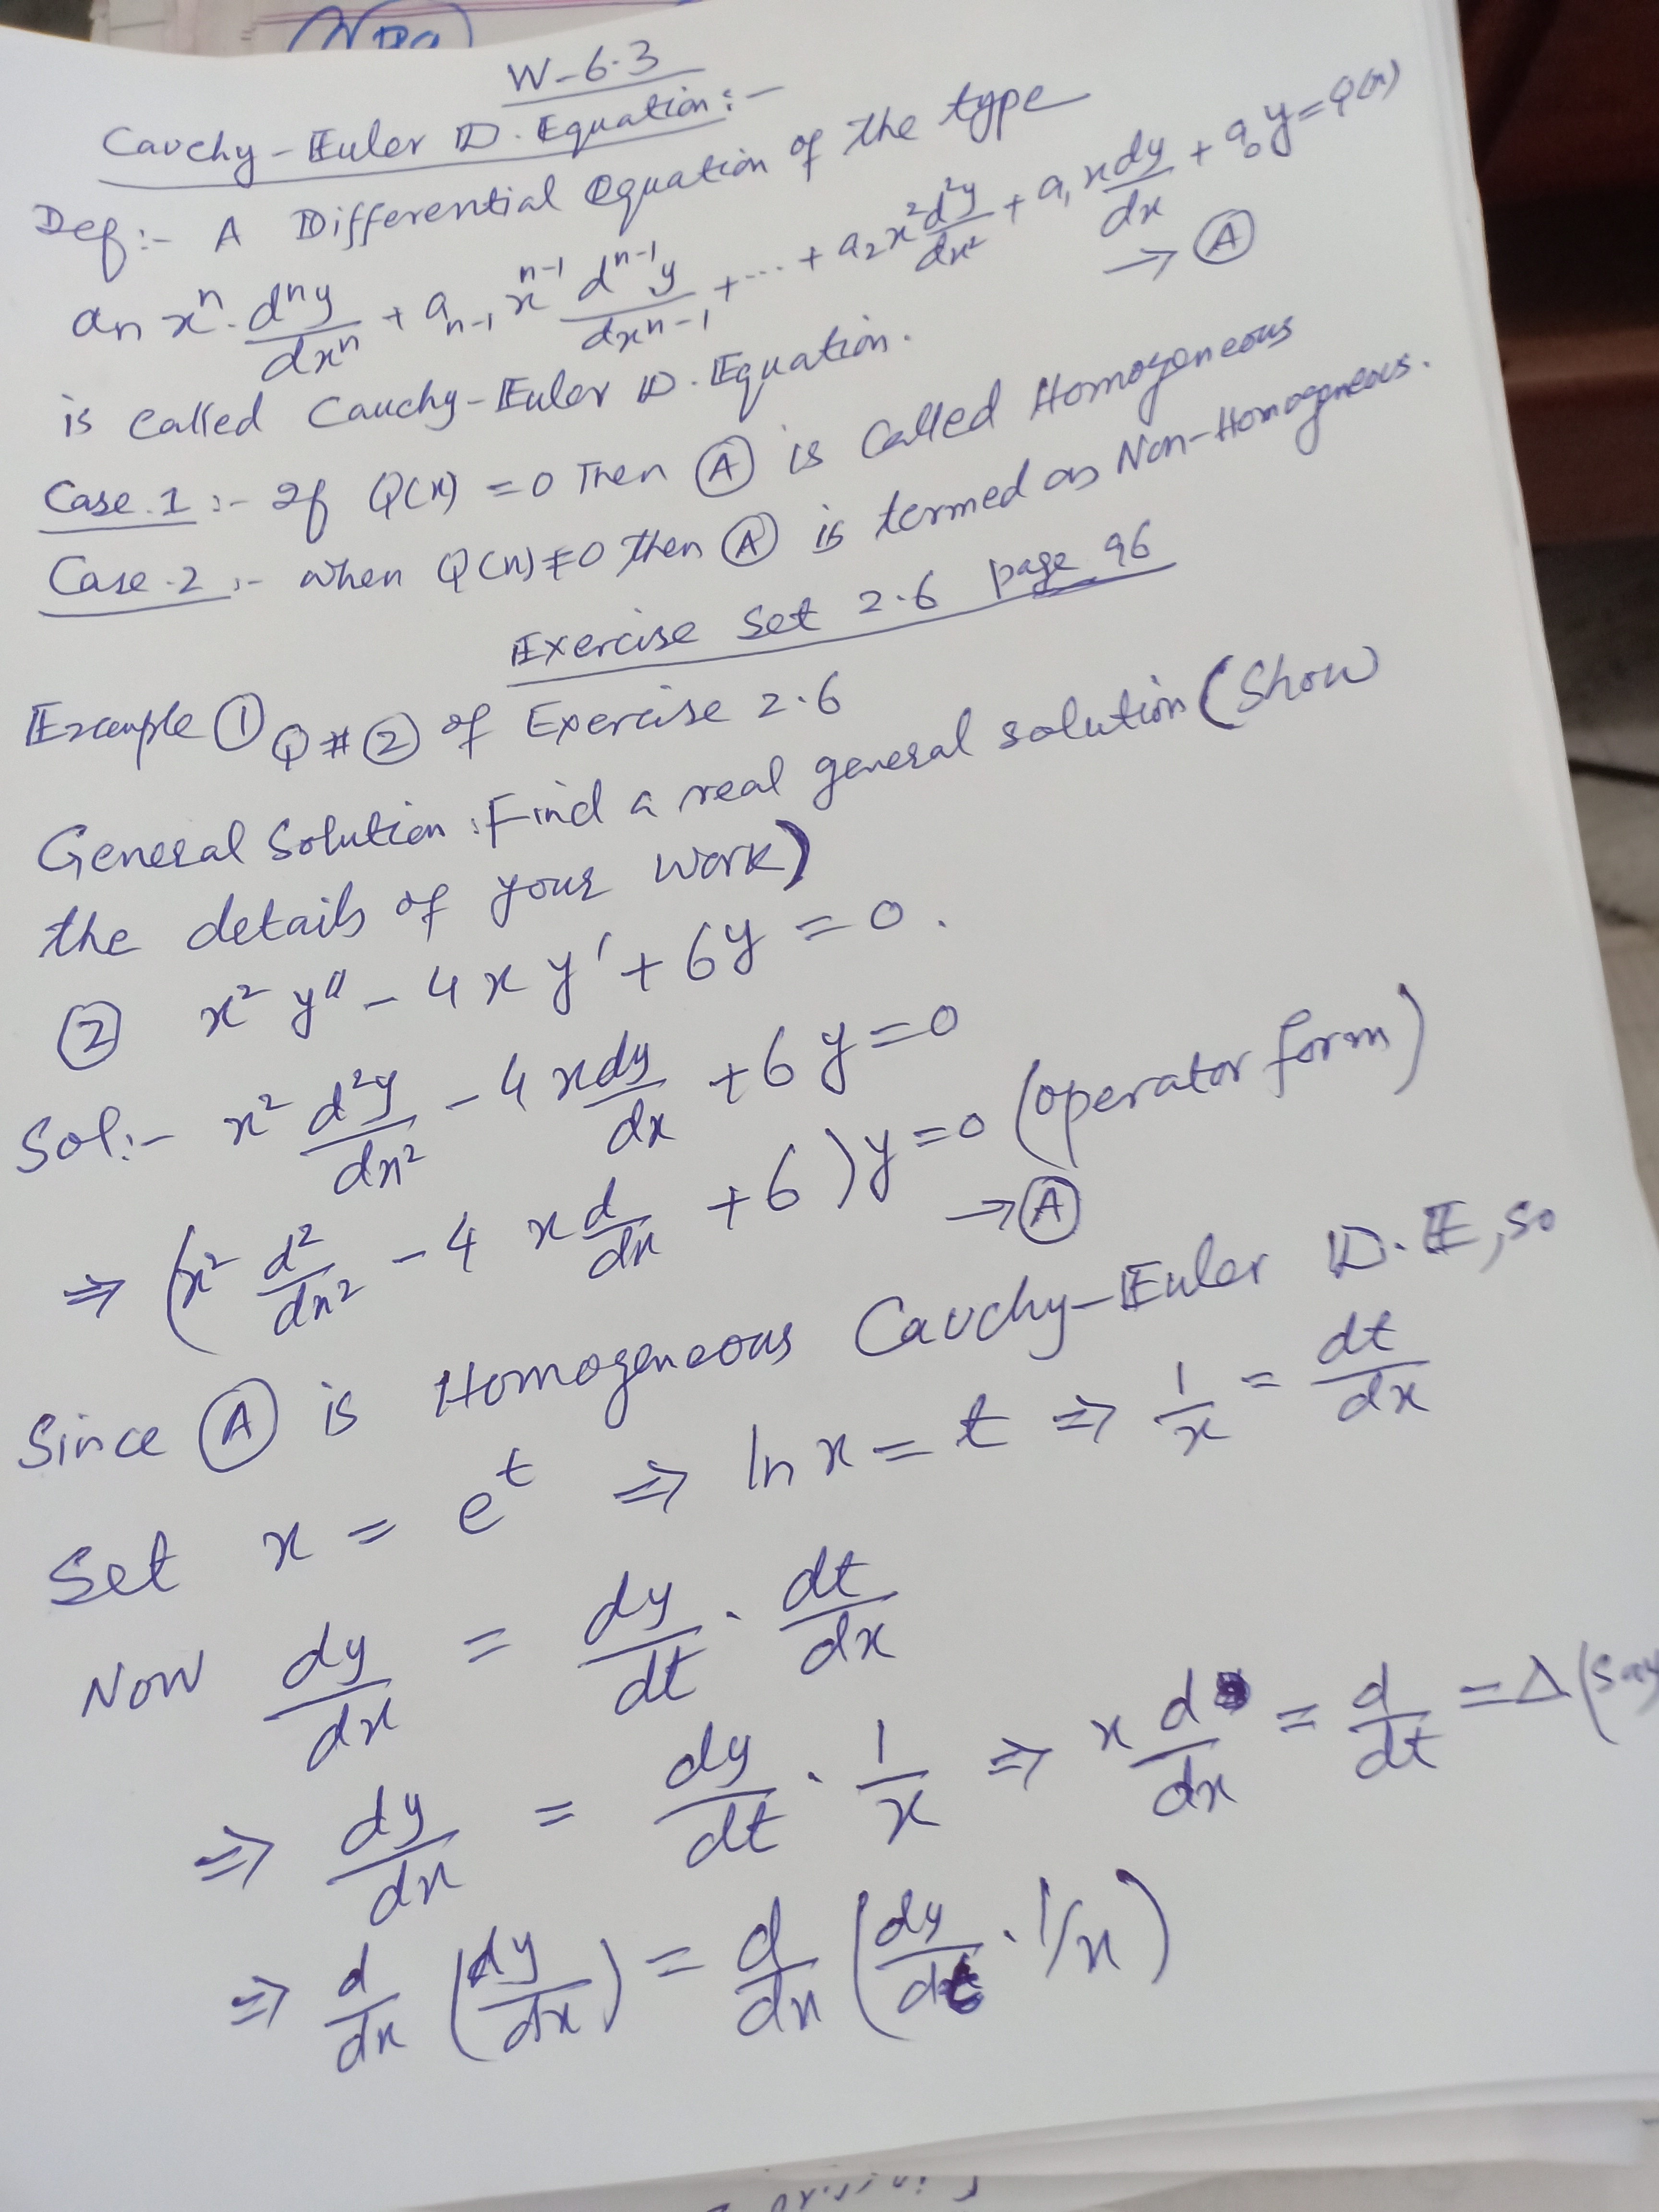 W-6.3
Cauchy-Euler D. Equation:-
Def:- A Differential Equation of the type
aₙ xⁿ. dⁿy/dxⁿ + aₙ₋₁ xⁿ⁻¹ dⁿ⁻¹y/dxⁿ⁻¹ + ... + a₂x² d²y/dx² + a₁x dy/dx + a₀y = Q(x)
→ Ⓐ
is called Cauchy-Euler D. Equation.
Case.1 :- If Q(x) = 0 Then Ⓐ is called Homogeneous
Case.2 :- when Q(x) ≠ 0 then Ⓐ is termed as Non-Homogeneous.
Exercise Set 2.6 page 96
Example ① Q # ② of Exercise 2.6
General Solution: Find a real general solution (Show
the details of your work)
② x² y'' - 4xy' + 6y = 0.
Sol:- x² d²y/dx² - 4x dy/dx + 6y = 0
⇒ (x² d²/dx² - 4 x d/dx + 6) y = 0 (operator form)
→ Ⓐ
Since Ⓐ is Homogeneous Cauchy-Euler D.E, so
Set x = eᵗ ⇒ ln x = t ⇒ 1/x = dt/dx
Now dy/dx = dy/dt . dt/dx
⇒ dy/dx = dy/dt . 1/x ⇒ x d/dx = d/dt = Δ (say
⇒ d/dx (dy/dx) = d/dx (dy/dt . 1/x)